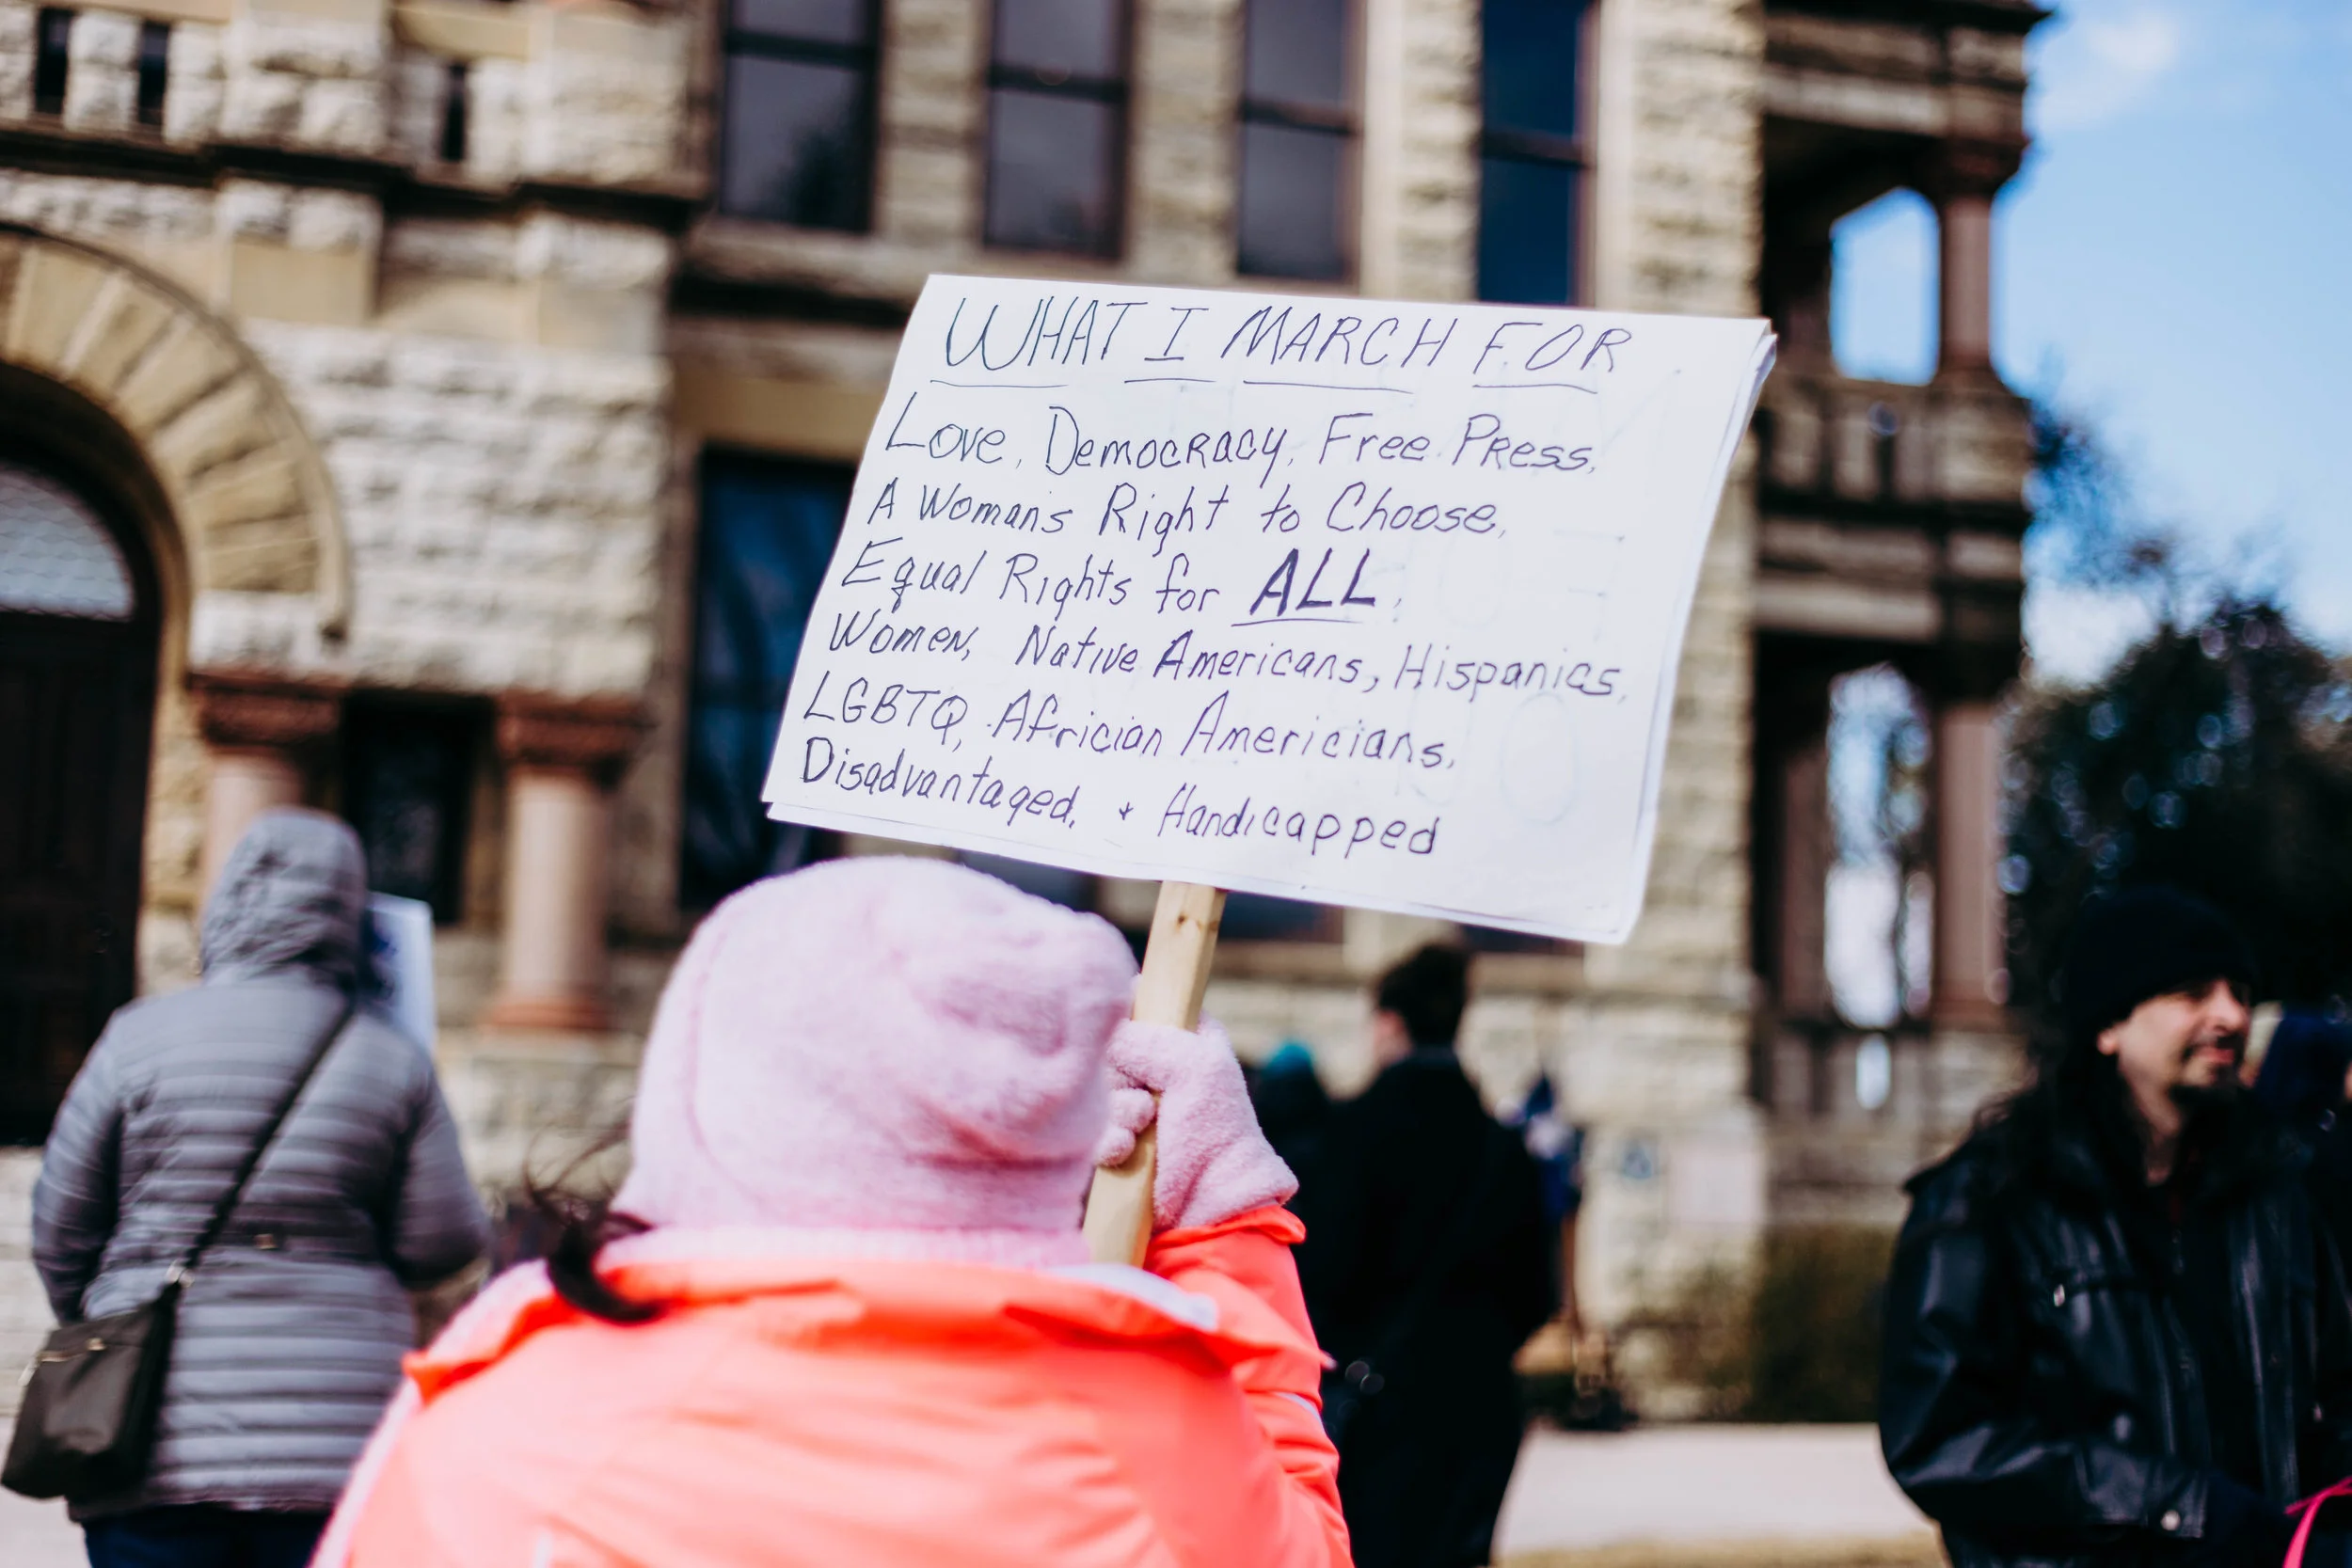 WHAT I MARCH FOR
Love, Democracy, Free Press,
A Woman's Right to Choose,
Equal Rights for ALL,
Women, Native Americans, Hispanics,
LGBTQ, Africian Americians,
Disadvantaged, + Handicapped